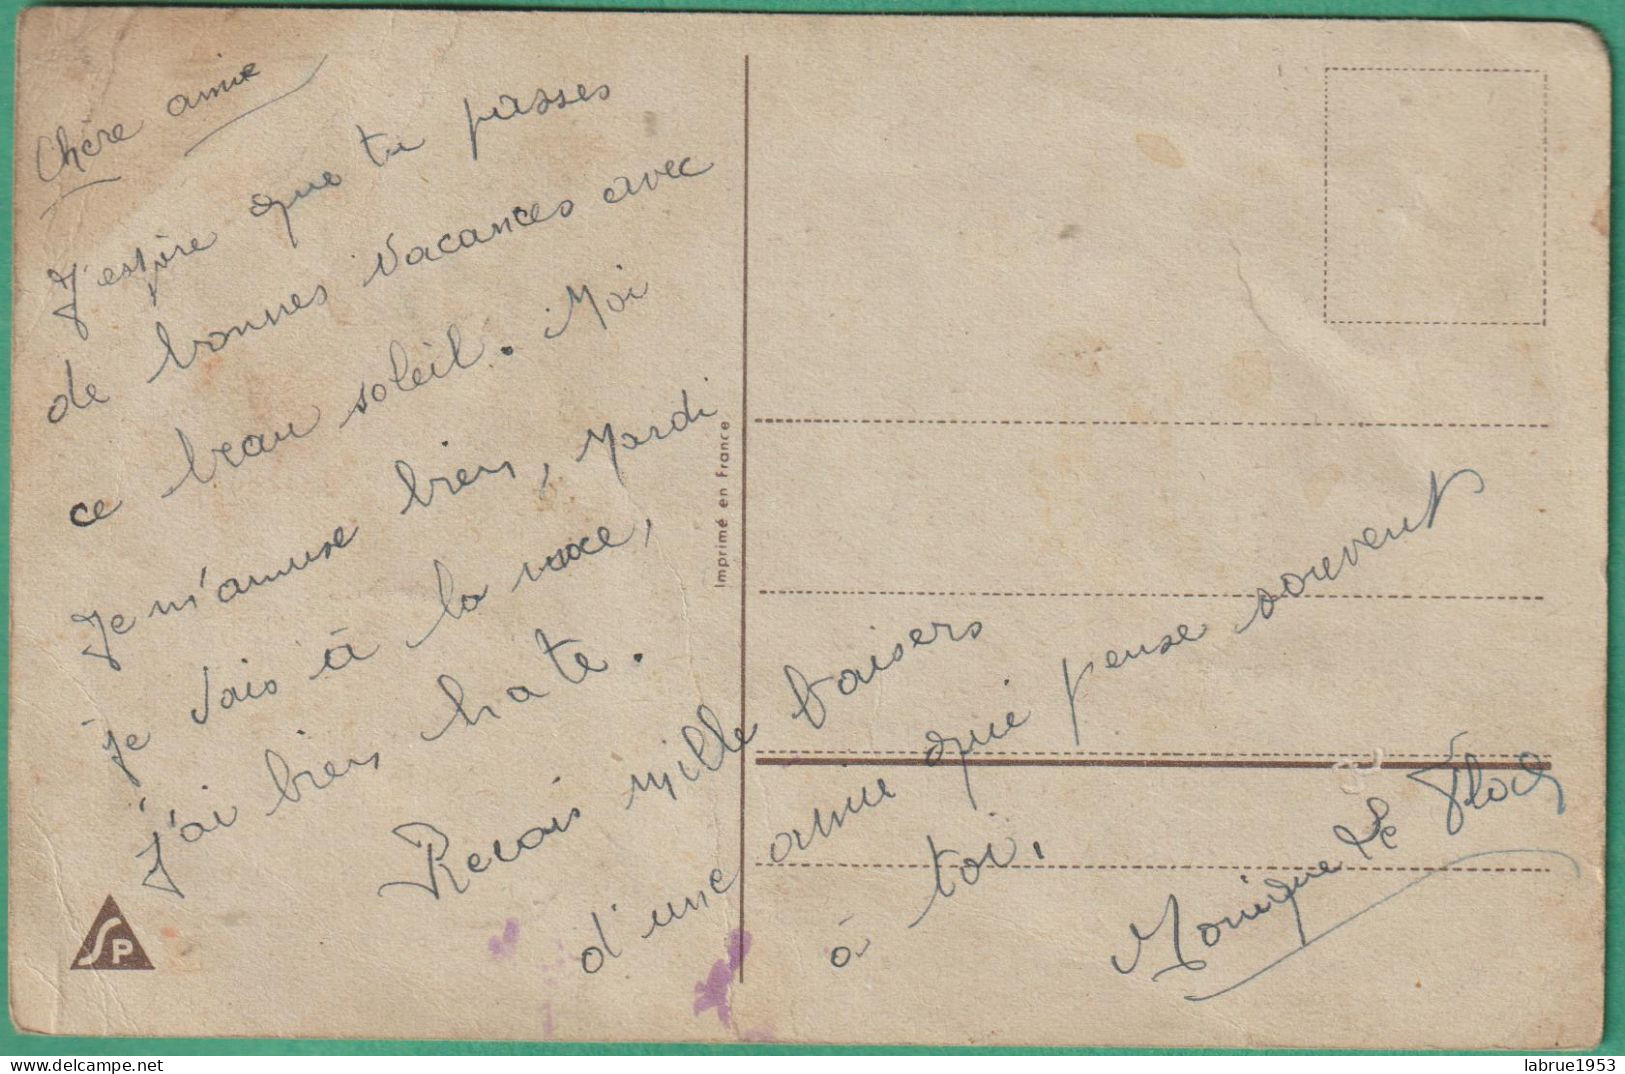 Chère amie
J'espère que tu passes
de bonnes vacances avec
ce beau soleil. Moi
je m'amuse bien, Mardi
je vais à la noce,
j'ai bien hate.
Recois mille baisers
d'une amie qui pense souvent
à toi.
Monique Le Floch
Imprimé en France
SP
delcampe.net
labrue1953